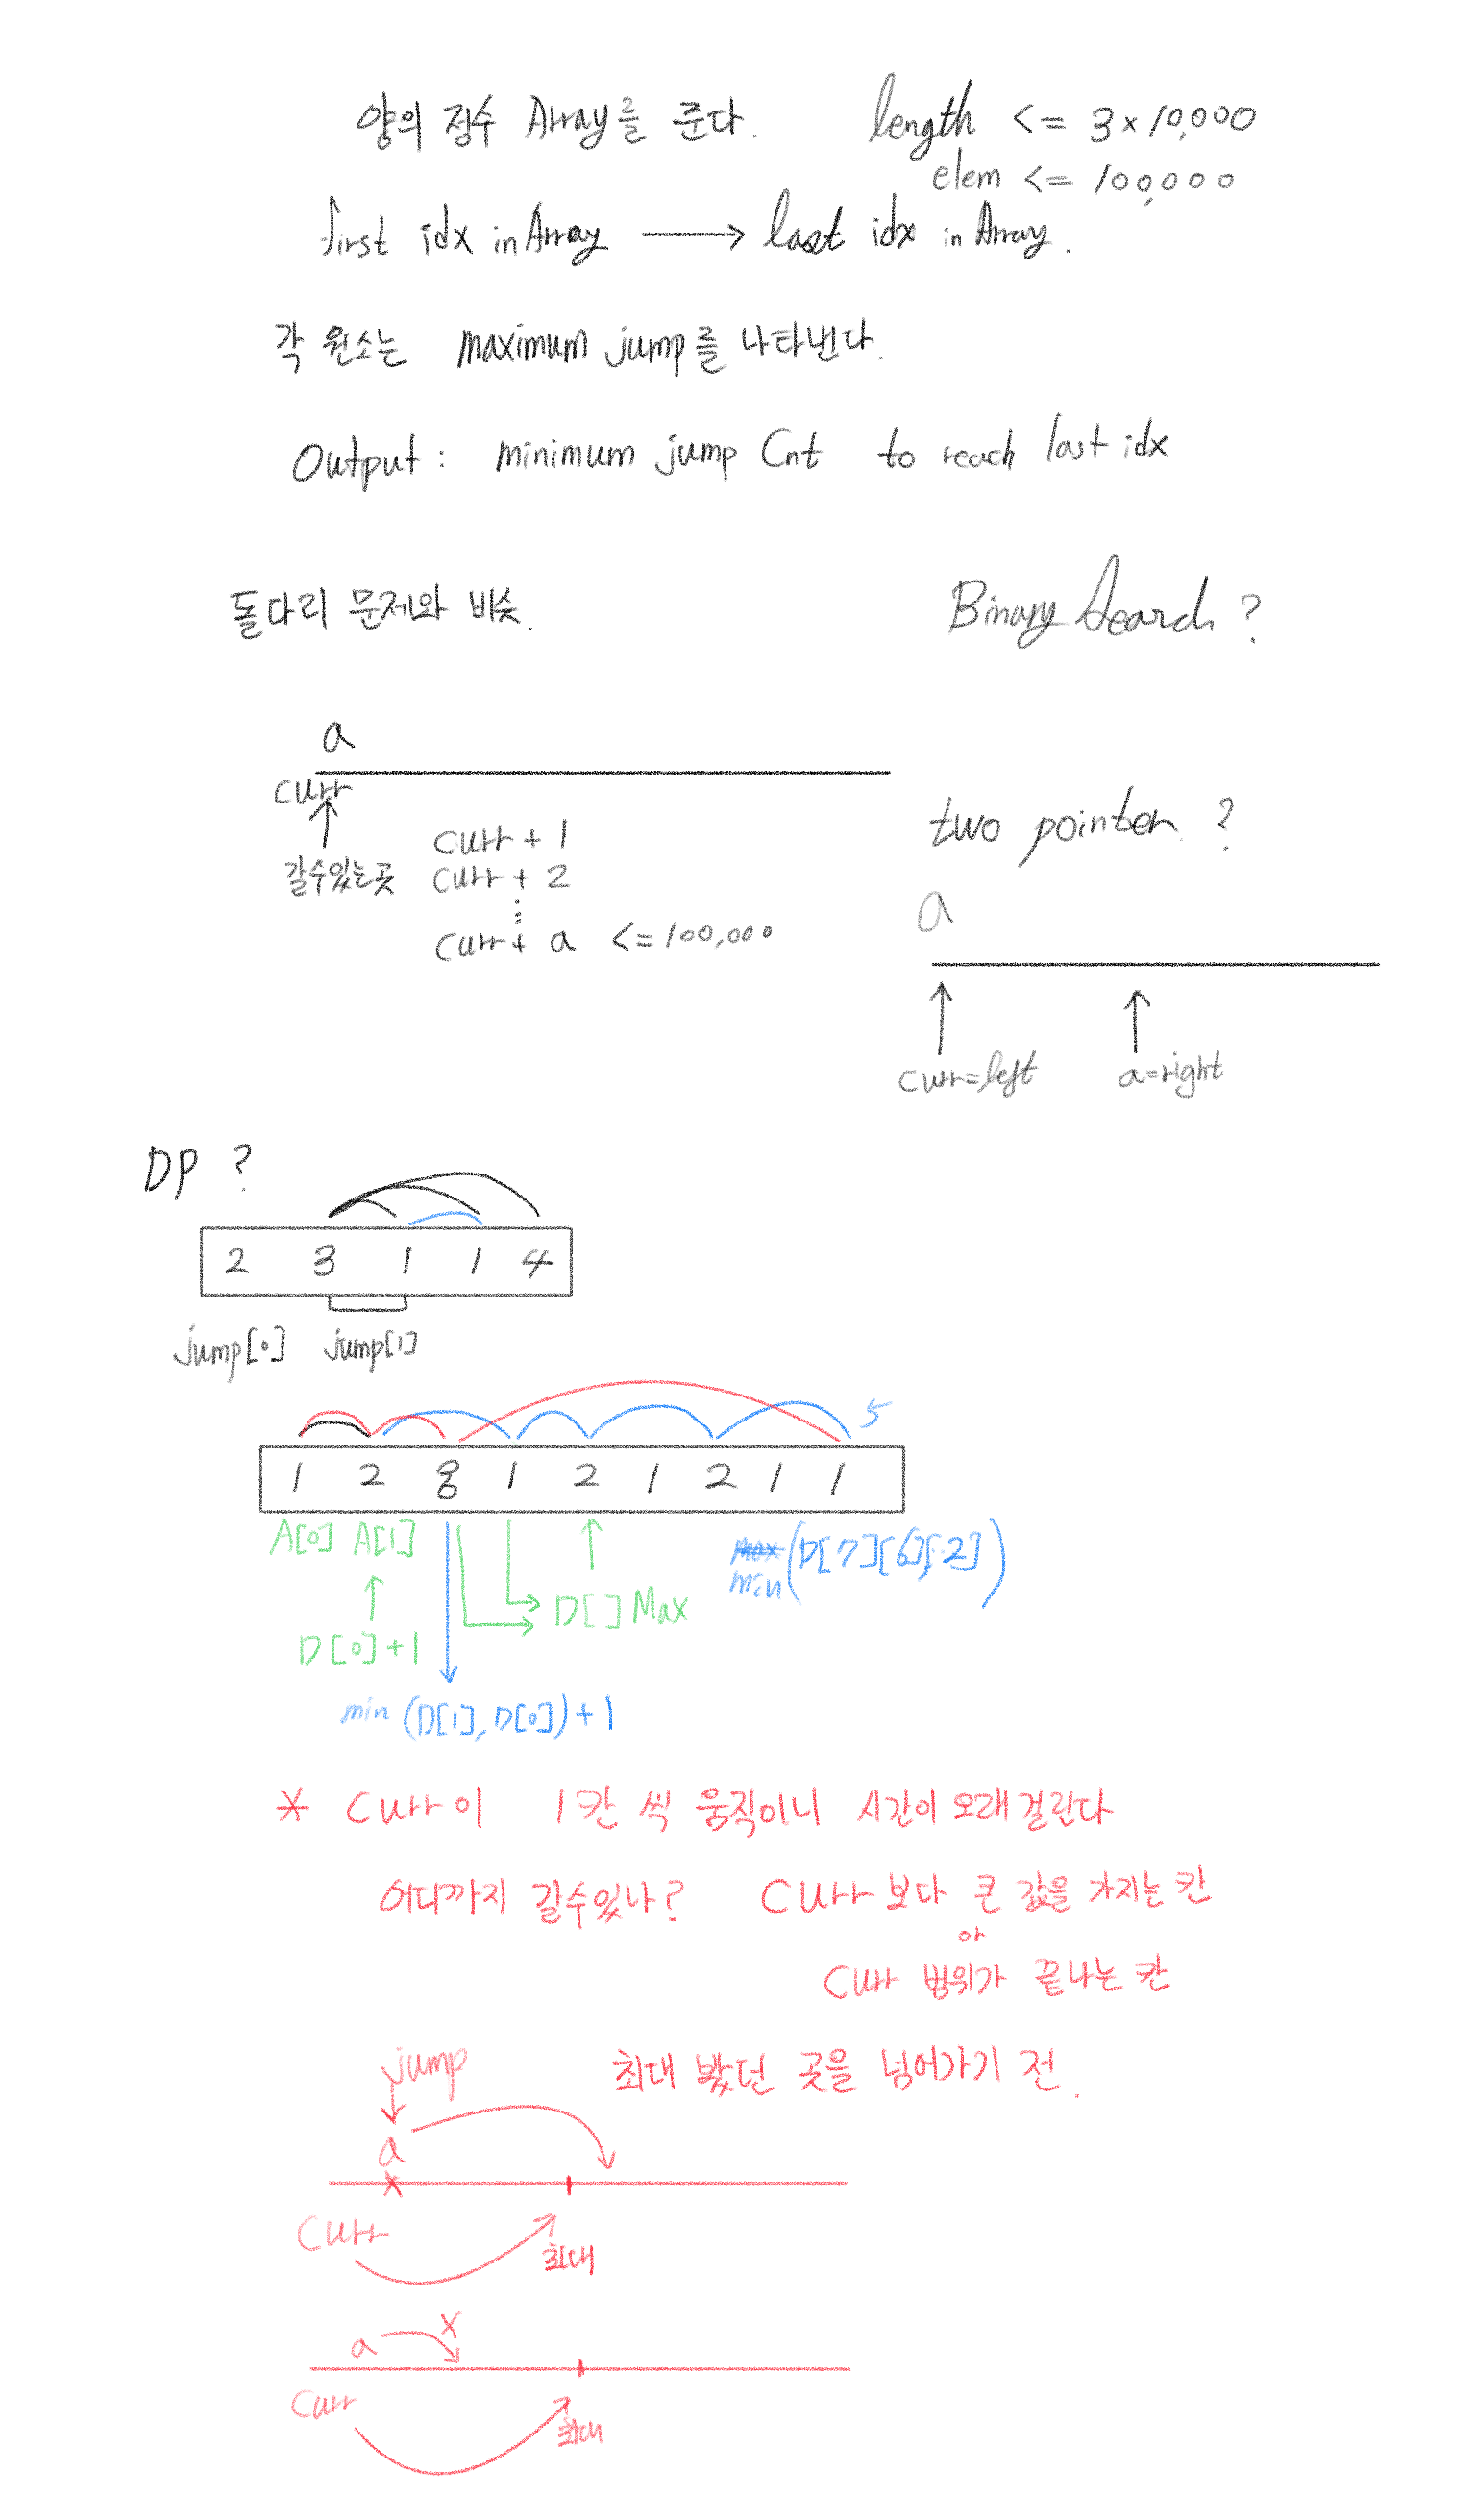 양의 정수 Array를 준다. length <= 3 × 10,000
elem <= 100,000
first idx in Array → last idx in Array.
각 원소는 maximum jump를 나타낸다.
Output: minimum jump Cnt to reach last idx
돌다리 문제와 비슷.
Binary Search ?
a
curr
갈수있는곳
curr + 1
curr + 2
⋮
curr + a <= 100,000
two pointer ?
a
curr=left a=right
DP ?
2 3 1 1 4
jump[0] jump[1]
5
1 2 8 1 2 1 2 1 1
A[0] A[1]
D[0]+1
D[ ] Max
Max
min (D[7][6][-2])
min (D[1], D[0])+1
* Curr이 1칸 씩 움직이니 시간이 오래걸린다
어디까지 갈수있나? Curr 보다 큰 값을 가지는 칸
아
Curr 범위가 끝나는 칸
jump 최대 봤던 곳을 넘어가기 전.
a
Curr
최대
a x
Curr
최대